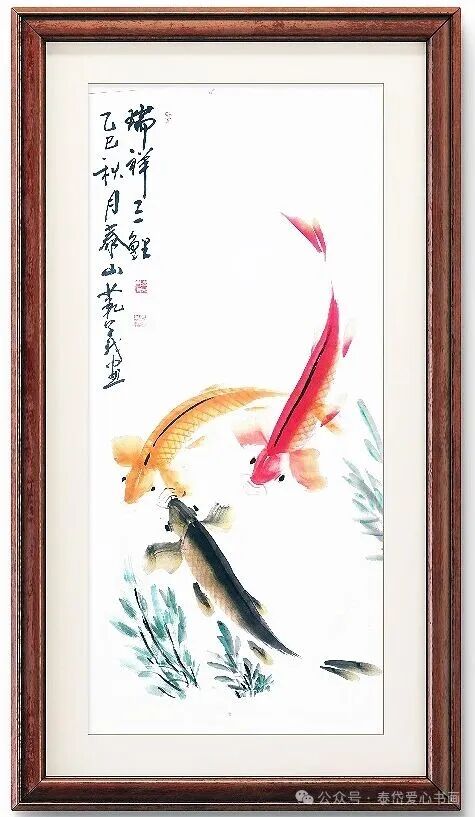 瑞祥三鲤
乙巳秋月泰山范義画
公众号 · 泰岱爱心书画